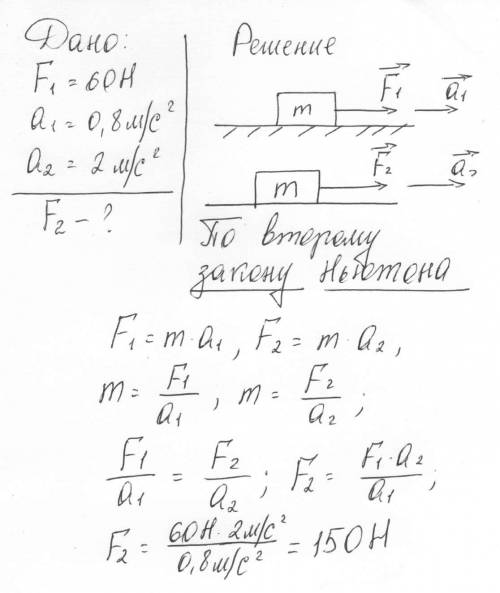 Дано:
F₁ = 60Н
a₁ = 0,8м/с²
a₂ = 2м/с²
F₂ – ?
Решение
m F₁ a₁
m F₂ a₂
По второму
закону Ньютона
F₁ = m · a₁ , F₂ = m · a₂ ,
m = F₁/a₁ , m = F₂/a₂ ;
F₁/a₁ = F₂/a₂ ; F₂ = F₁·a₂/a₁ ;
F₂ = 60Н · 2м/с²/0,8м/с² = 150Н